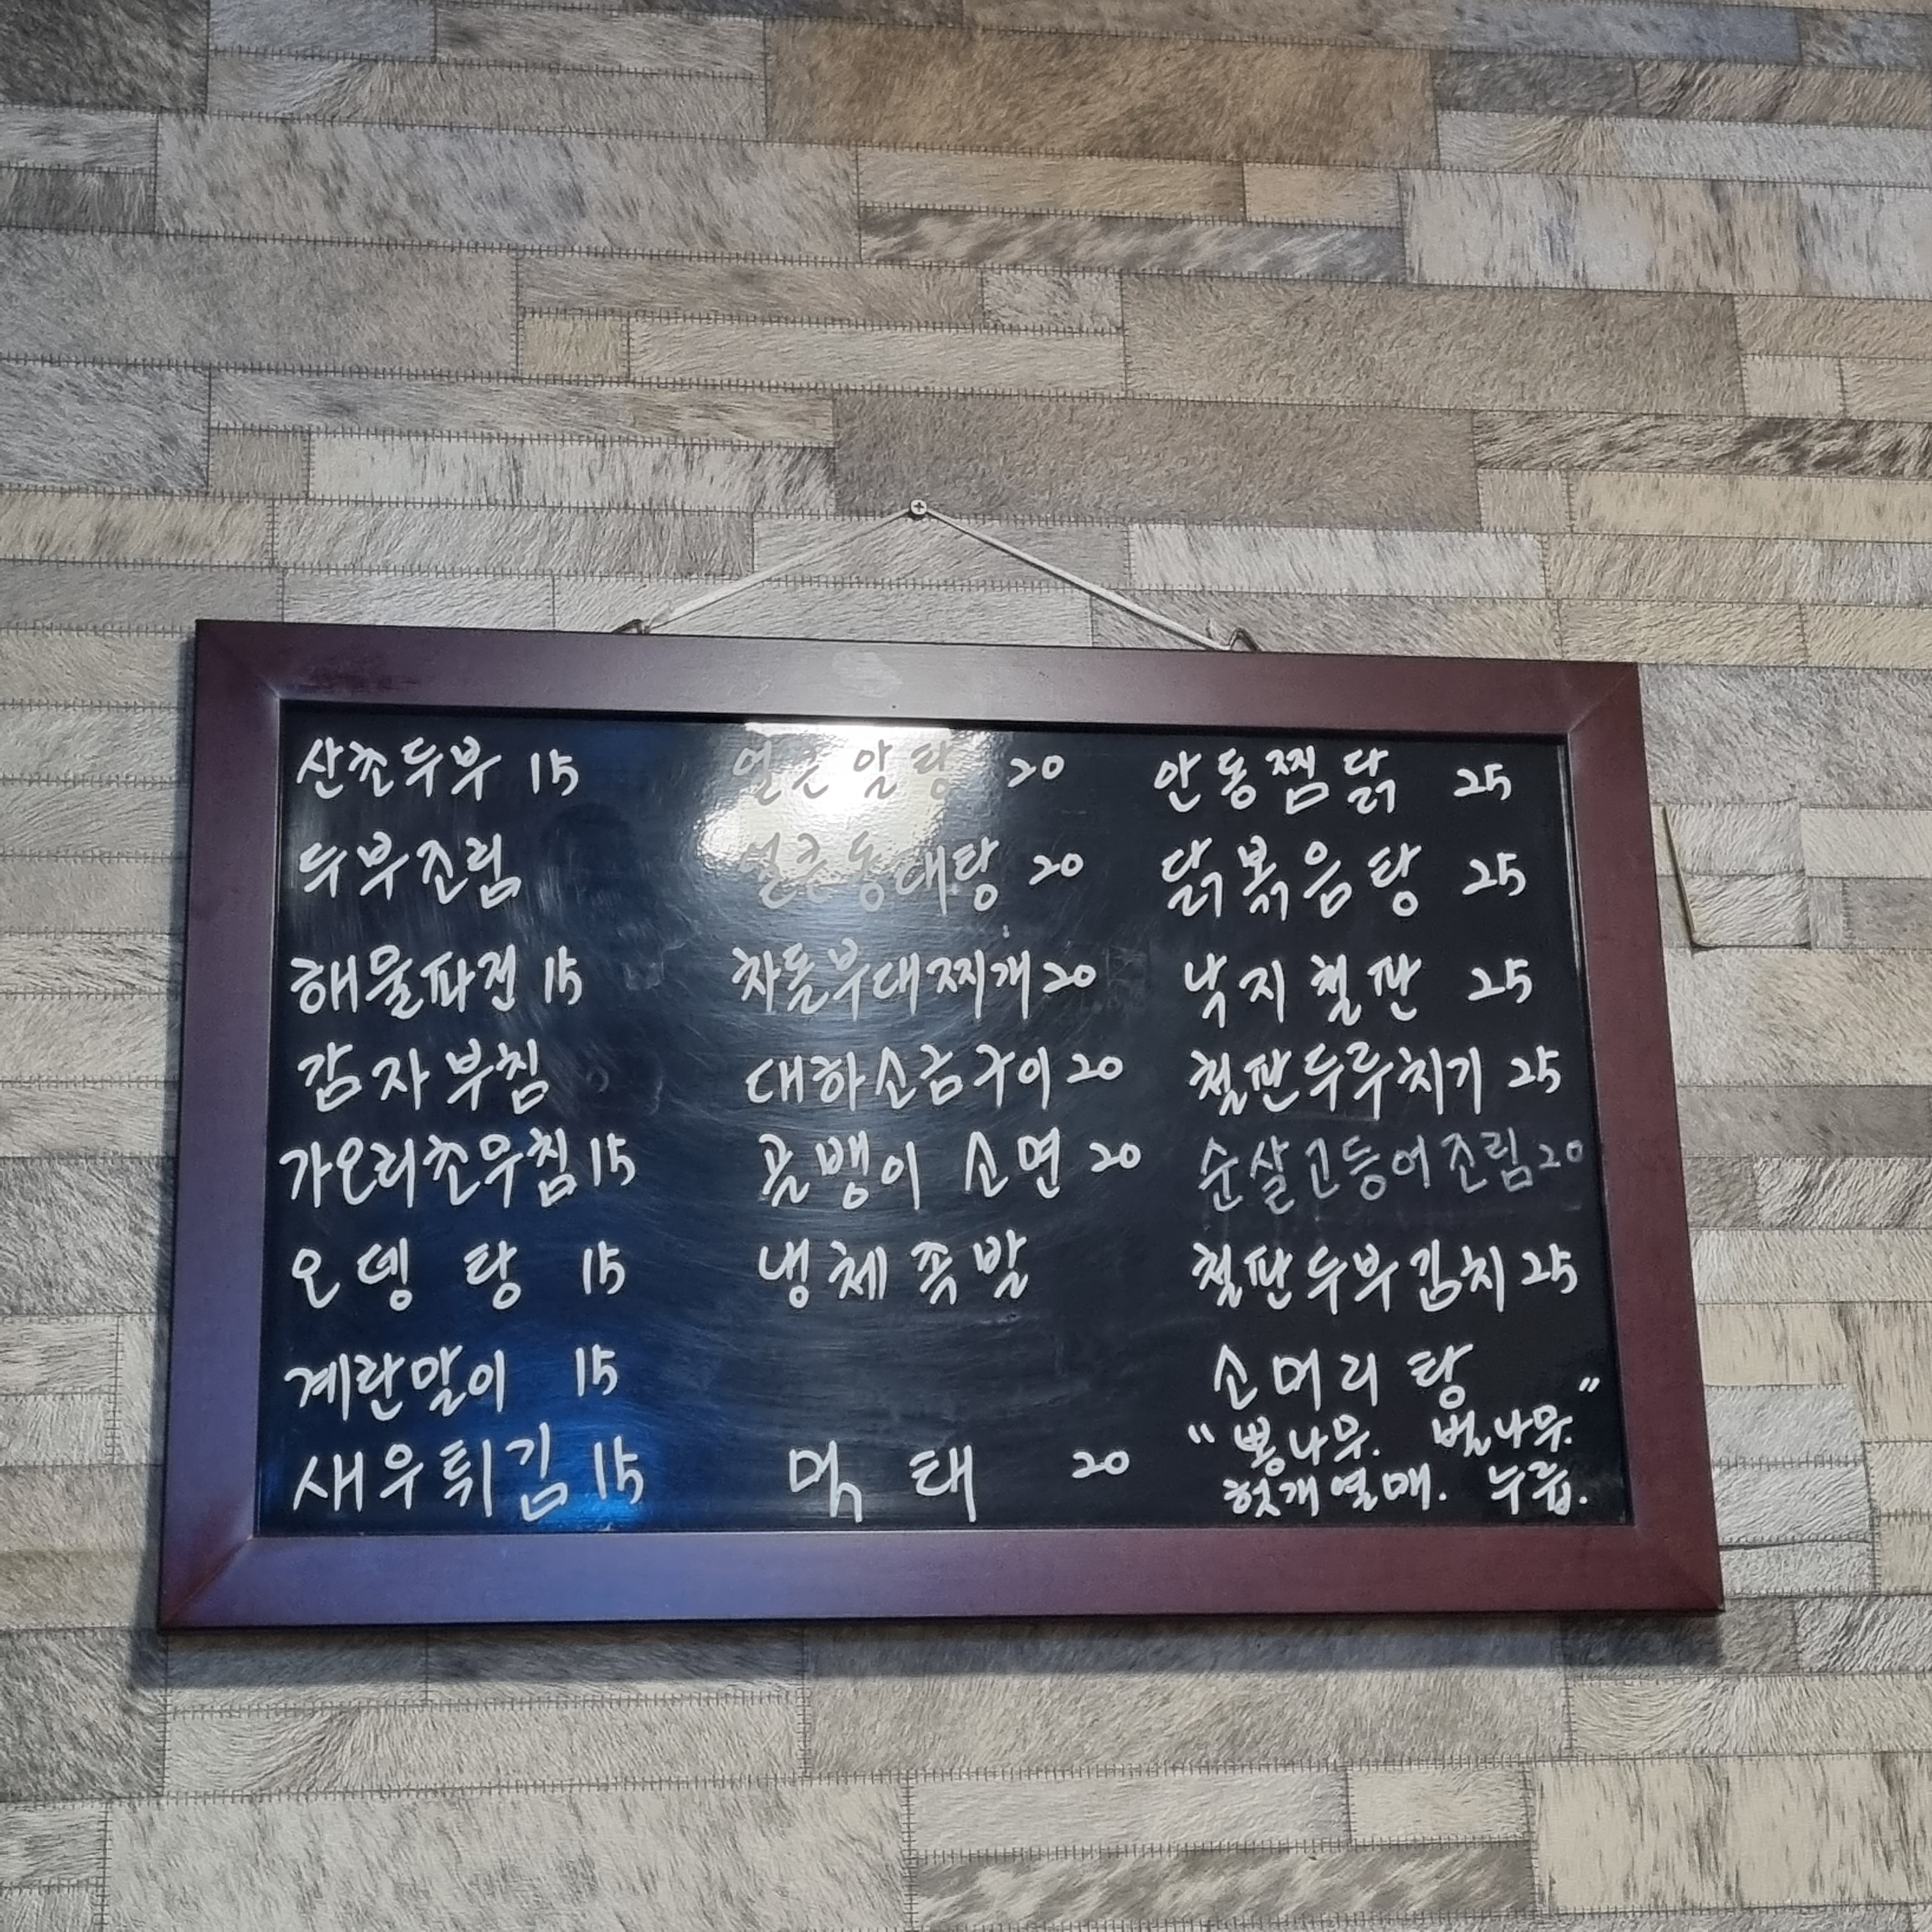 산초두부 15
두부조림
해물파전 15
감자부침
가오리초무침 15
오뎅 탕 15
계란말이 15
새우튀김 15
얼큰 알탕 20
얼큰동태탕 20
차돌부대찌개 20
대하소금구이 20
골뱅이 소면 20
냉체족발
먹태 20
안동찜닭 25
닭볶음탕 25
낙지철판 25
철판두루치기 25
순살고등어조림 20
철판두부김치 25
소머리탕
"뽕나무. 벌나무."
헛개열매. 누룹.